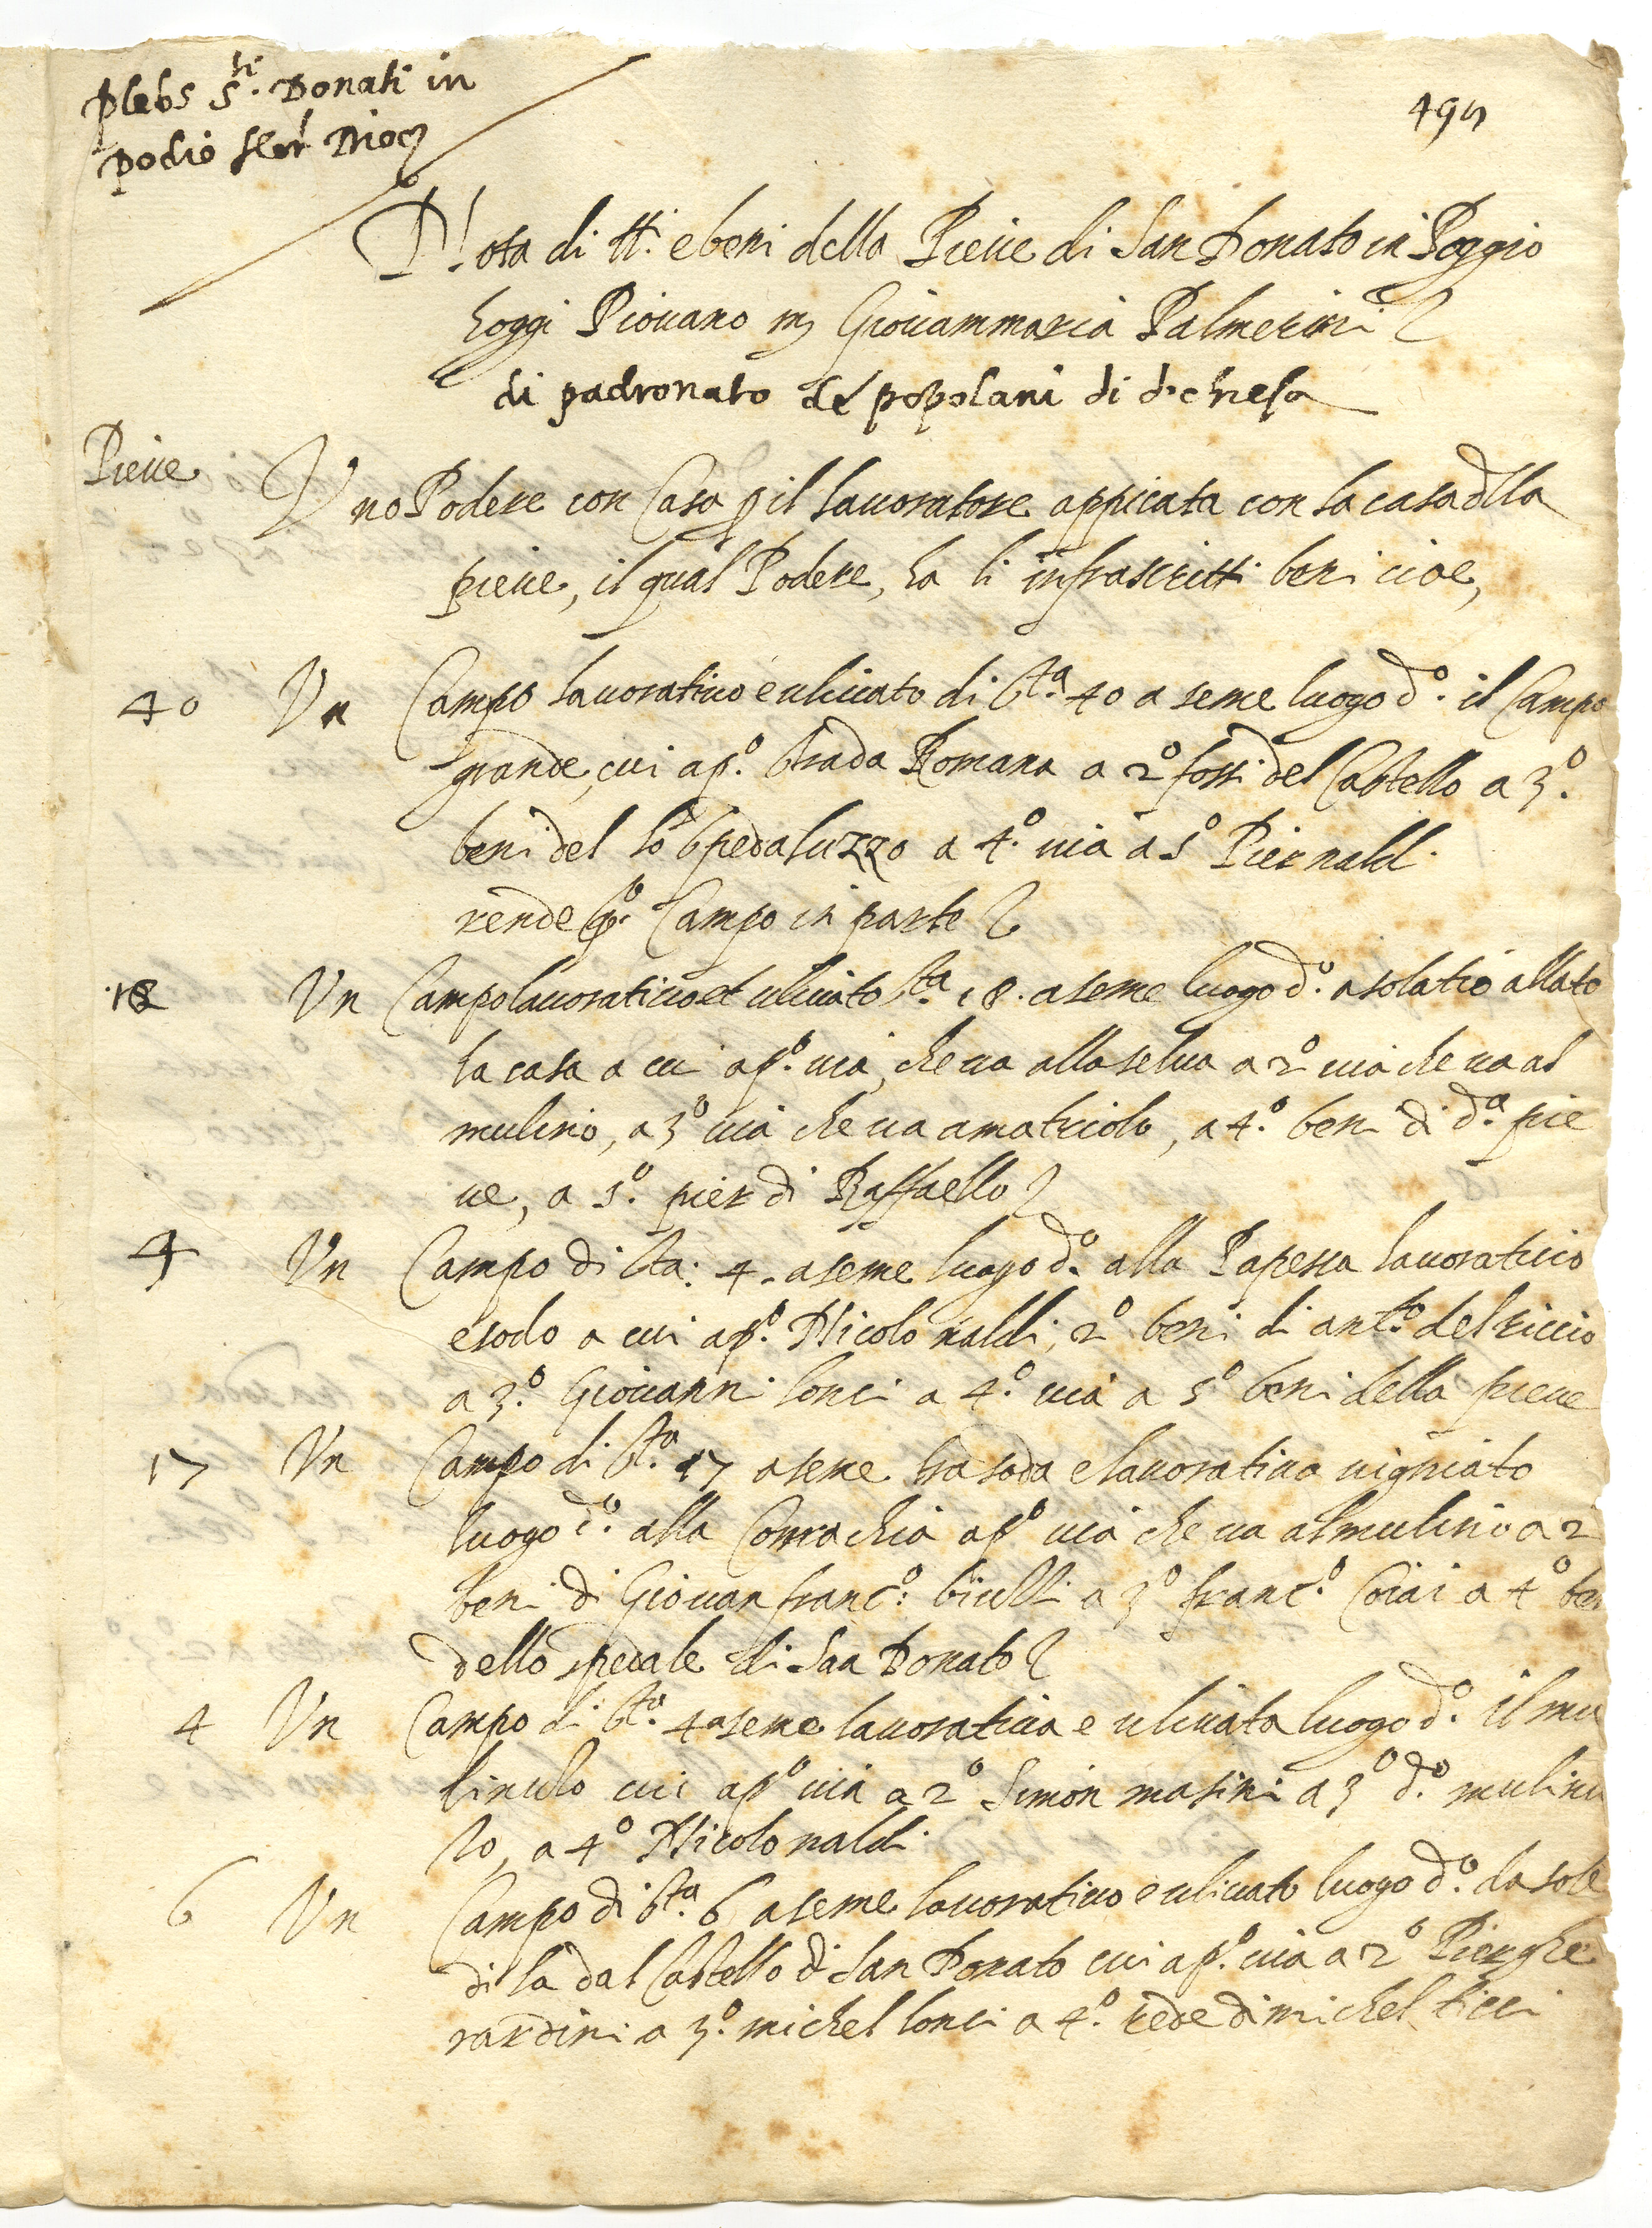 Plebs S.ti Donati in
Podio flor Dioc
495
Nota di tt.i e beni della Pieve di San Donato in Poggio
hoggi Piovano m Giovammaria Palmerini
di padronato de popolani di d. chiesa
Pieve
Uno Podere con Casa p il lavoratore appicata con la casa dlla
pieve, il qual Podere, ha li infrascritti beni cioe,
40 Un Campo lavorativo e ulivato di sta 40 a seme luogo d.o il Campo
grande, cui a p.o strada Romana a 2o fossi del Castello a 3.o
beni del lo spedaluzzo a 4.o via a 5o Pier naldi
rende q.o Campo in parte
18 Un Campo lavorativo et ulivato sta 18. a seme luogo d.o a solatio allato
la casa a cui a p.o via, che va alla selva a 2o via che va al
mulino, a 3o via che va a matriolo, a 4.o beni di d.a pie
ve, a 5.o pier di Raffaello
4 Un Campo di sta: 4. a seme luogo d.o alla Papessa lavoratiio
e sodo a cui a p.o Nicolo naldi, 2o beni di ant.o del riccio
a 3.o Giovanni lonci a 4.o via a 5o beni della pieve
17 Un Campo di sta 17 a seme tra soda e lavorativa vigniato
luogo d.o alla a p.o via che va al mulino a 2
beni di Giovan franc.o a 3o franc.o Ciai a 4o be
dello spedale di San Donato
4 Un Campo di sta 4 a seme lavorativa e ulivata luogo d.o il mu
linulo cui a p.o via a 2o Simon masini a 3o d.o mulinu
lo, a 4o Nicolo naldi.
6 Un Campo di sta 6 a seme lavorativo e ulivato luogo d.o da sole
di la dal Castello di San Donato cui a p.o via a 2o Pier ghe
rardini a 3.o michel lonci a 4.o rede di michel ticci